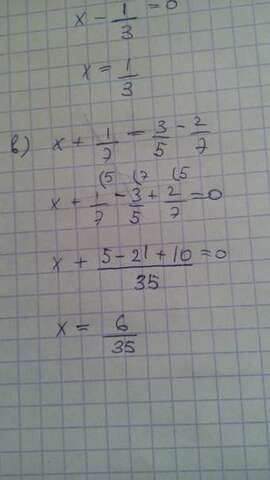 x - 1/3 = 0
x = 1/3
в) x + 1/7 = 3/5 - 2/7
(5 (7 (5
x + 1/7 - 3/5 + 2/7 = 0
x + (5 - 21 + 10)/35 = 0
x = 6/35